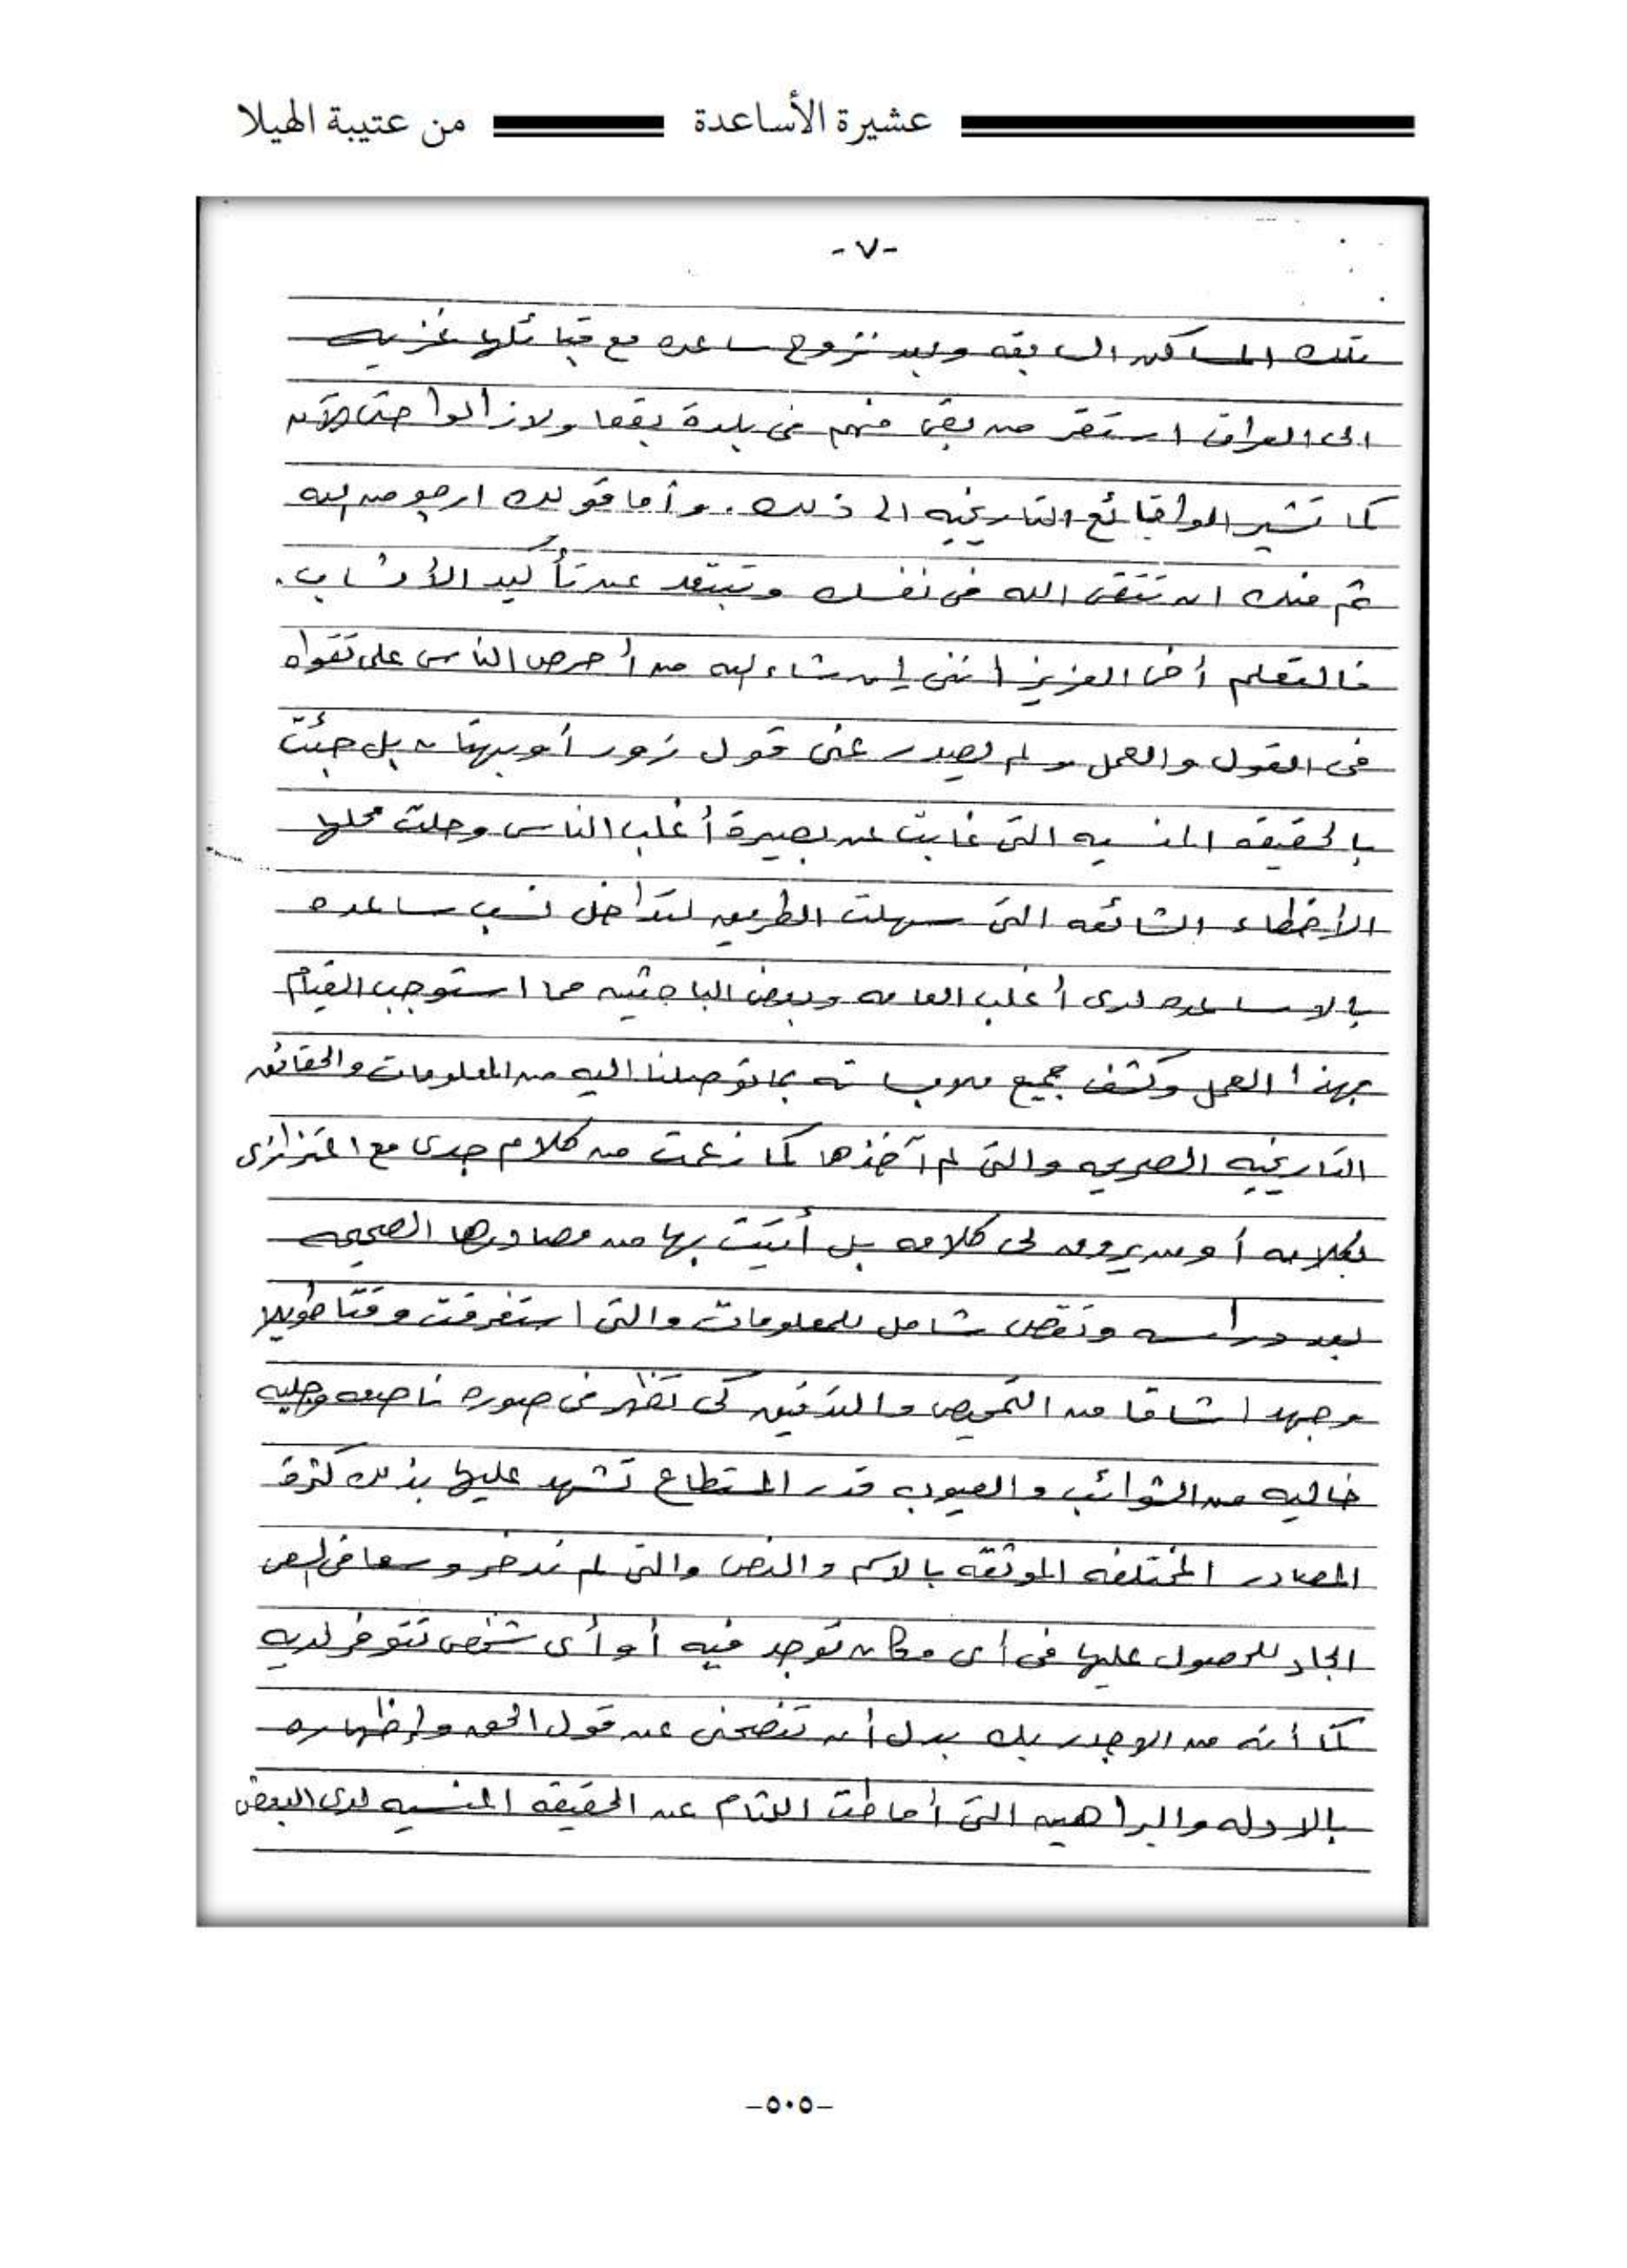 عشيرة الأساعدة من عتيبة الهيلا
-٧-
تلك المساكن السابقه وبعد نزوح ساعده مع قبائلها غزيه
الى العراق استقر من بقى منهم فى بلدة بقعا ولازالوا حتى الآن
كما تشير الواقائع التاريخيه الى ذلك. وأما قولك ارجو من الله
ثم منك ان تتقى الله فى نفسك وتبتعد عن تأكيد الأنساب.
فالتعلم أخى العزيز اننى إن شاء الله من أحرص الناس على تقواه
فى القول والعمل ولم يصدر عنى قول زور أو بهتان بل جئت
بالحقيقه المنسيه التى غابت عن بصيرة أغلب الناس وحلت محلها
الأخطاء الشائعه التى سهلت الطريق لتداخل نسب ساعده
بالاساعده لدى أغلب العامه وبعض الباحثين مما استوجب القيام
بهذا العمل وكشف جميع ملابساته بما توصلنا اليه من المعلومات والحقائق
التاريخيه الصريحه والتى لم آخذها كما زعمت من كلام جدى مع اعتزازى
بكلامه أو من يروون لى كلامه بل أتيت بها من مصادرها الصحيحه
بعد دراسه وتقص شامل للمعلومات والتى استغرقت وقتا طويلا
وجهدا شاقا من التمحيص والتدقيق لكى تظهر فى صوره ناصعه وجليه
خاليه من الشوائب والعيوب قدر المستطاع تشهد عليها بذلك كثرة
المصادر المختلفه الموثقه بالاسم والنص والتى لم ندخر وسعا فى السعى
الجاد للحصول عليها فى أى مكان توجد فيه أو أى شخص تتوفر لديه
كما أنه من الاجدر بك بدل أن تنصحنى عن قول الحق وإظهاره
بالادله والبراهين التى أماطت اللثام عن الحقيقه المنسيه لدى البعض
-٥٠٥-